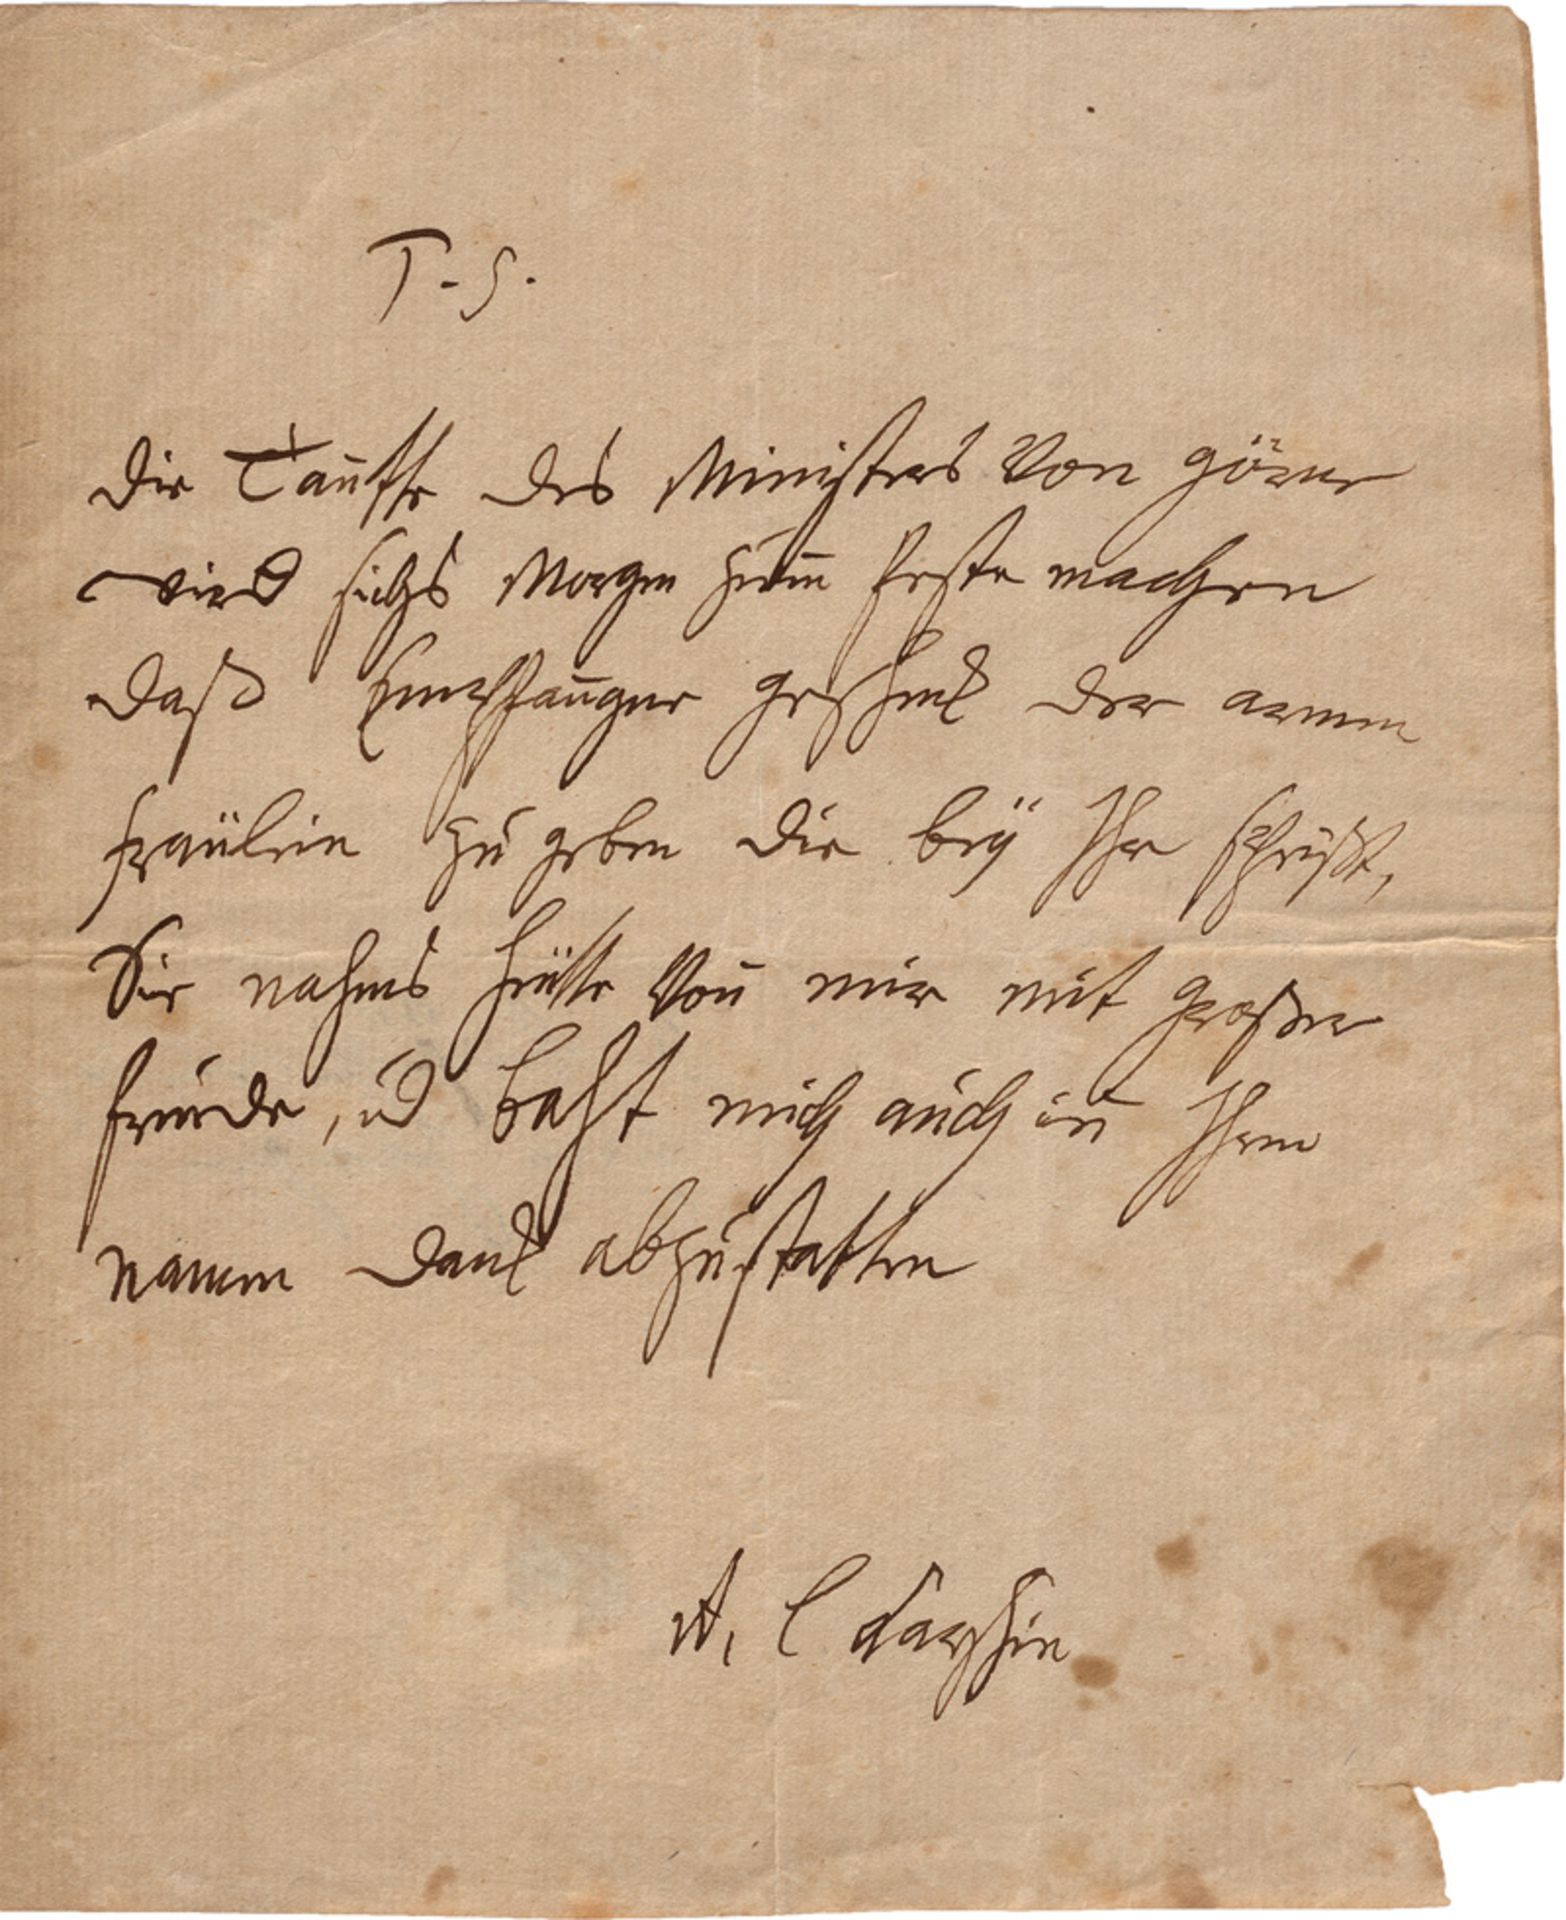 P. S.
die Tante des Ministers Von görne
wird sichs Morgen zum Feste machen
daß Empfangne geschenk der armen
Fräulein zu geben die beÿ Ihr
Sie nahms heütte Von mir mit großer
freüde, ud baht mich auch in Ihren
namen dank abzustatten
A. L Karschin